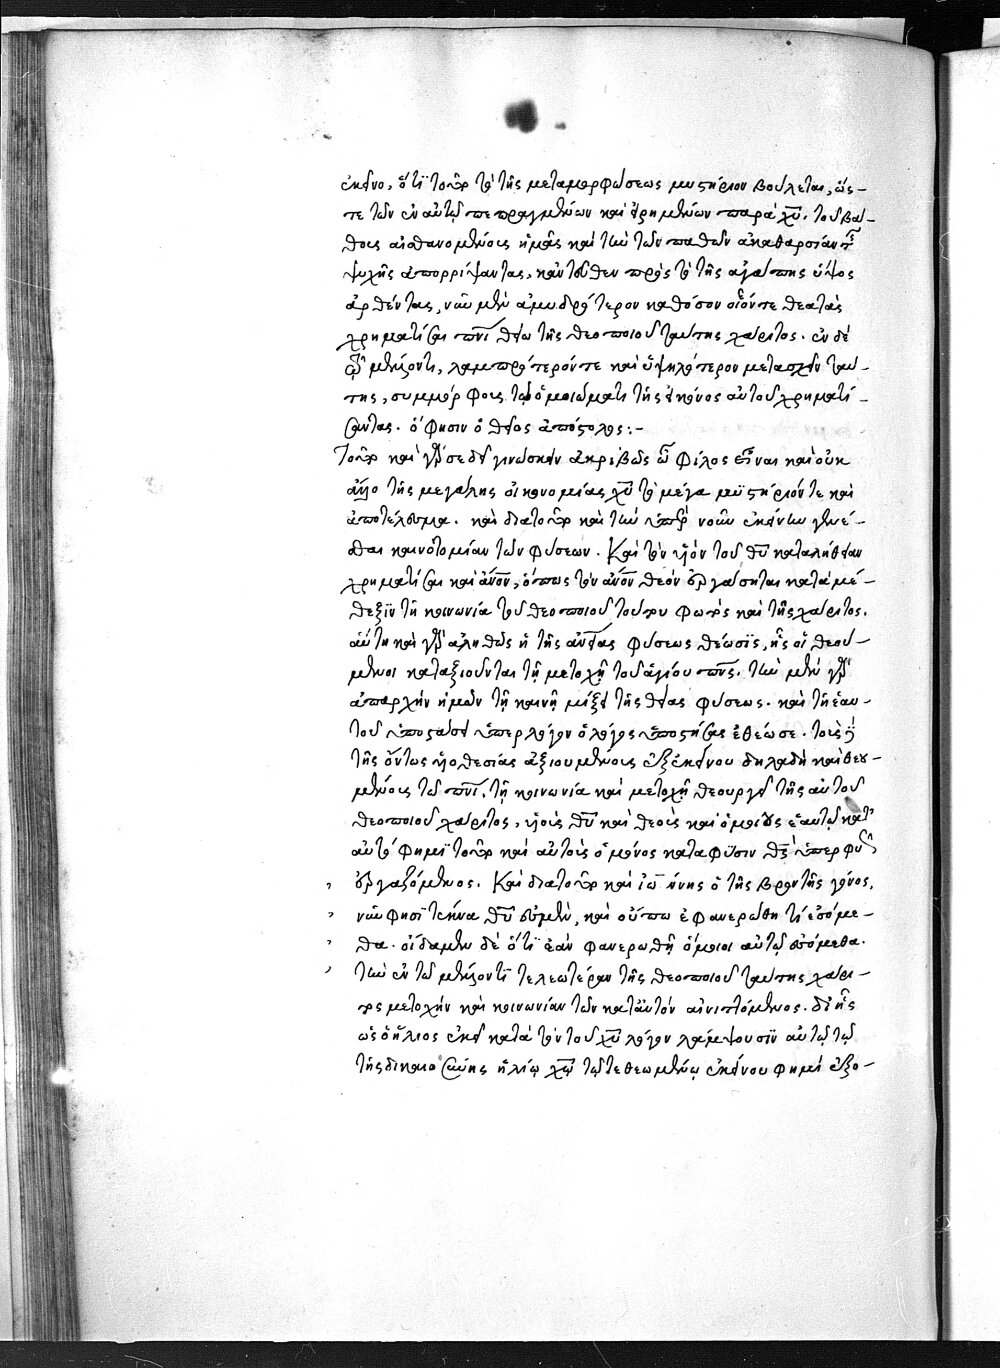 ἐκεῖνο, ὅτι τοῦτο τὸ τῆς μεταμορφώσεως μυστήριον βούλεται, ὥς-
τε τῶν ἐν αὐτῷ πεπραγμένων καὶ εἰρημένων παρὰ χῦ. τοῦ βά-
θους αἰσθανομένους ἡμᾶς καὶ τὴν τῶν παθῶν ἀκαθαρσίαν τῆς
ψυχῆς ἀπορρίψαντας, κἀντεῦθεν πρὸς τὸ τῆς ἀγάπης ὕψος
ἀρθέντας, νῦν μὲν ἀμυδρότερον καθόσον οἷόν τε θεατὰς
χρηματίσαι πνι θείω τῆς θεοποιοῦ ταύτης χάριτος. ἐν δὲ
τῷ μέλλοντι, λαμπρότερόν τε καὶ ὑψηλότερον μετασχεῖν ταύ-
της, συμμόρφους τῷ ὁμοιώματι τῆς εἰκόνος αὐτοῦ χρηματί-
σαντας. ὅ φησιν ὁ θεῖος ἀπόστολος:-
Τοῦτο καὶ γάρ σε δεῖ γινώσκειν ἀκριβῶς ὦ φίλος εἶναι καὶ οὐκ
ἄλλο τῆς μεγάλης οἰκονομίας χῦ τὸ μέγα μυστήριόν τε καὶ
ἀποτέλεσμα. καὶ διατοῦτο καὶ τὴν ὑπὲρ νοῦν ἐκείνην γενέ-
σθαι καινοτομίαν τῶν φύσεων. Καὶ τὸν υἱὸν τοῦ θῦ καταλήθειαν
χρηματίσαι καὶ ἄνον, ὅπως τὸν ἄνον θεὸν ἐργάσηται κατὰ μέ-
θεξιν τῇ κοινωνία τοῦ θεοποιοῦ τούτου φωτὸς καὶ τῆς χάριτος.
αὕτη καὶ γὰρ ἀληθῶς ἡ τῆς ἀνείας φύσεως θέωσις, ἧς οἱ θεού-
μενοι καταξιοῦνται τῇ μετοχῇ τοῦ ἁγίου πνς. τὴν μὲν γὰρ
ἀπαρχὴν ἡμῶν τῇ καινῇ μίξει τῆς θείας φύσεως. καὶ τῇ ἑαυ-
τοῦ ὑποστάσει ὑπερλόγον ὁ λόγος ὑποστήσας ἐθέωσε. τοὺς
τῆς ὄντως υἱοθεσίας ἀξιουμένους ἐξ ἐκείνου δηλαδὴ καὶ θεου-
μένους τῶ πνι. τῇ κοινωνία καὶ μετοχῇ θεουργεῖ τῆς αὐτοῦ
θεοποιοῦ χάριτος, υἱοὺς θῦ καὶ θεοὺς καὶ ὁμοίους ἑαυτῷ κατ'
αὐτό φημι τοῦτο καὶ αὐτοὺς ὁ μόνος καταφύσιν θς ὑπερφυῶς
ἐργαζόμενος. Καὶ διατοῦτο καὶ ἰωάννης ὁ τῆς βροντῆς γόνος,
νῦν φησι τέκνα θῦ ἐσμὲν, καὶ οὔπω ἐφανερώθη τί ἐσόμε-
θα. οἴδαμεν δὲ ὅτι ἐὰν φανερωθῇ ὅμοιοι αὐτῷ ἐσόμεθα.
τὴν ἐν τῶ μέλλοντι τελεωτέραν τῆς θεοποιοῦ ταύτης χάρι-
τος μετοχὴν καὶ κοινωνίαν τῶν κατ' αὐτὸν αἰνιττόμενος. δι' ἧς
ὡς ὁ ἥλιος ἐκεῖ κατὰ τὸν τοῦ χῦ λόγον λάμψουσιν αὐτῷ τῷ
τῆς δικαιοσύνης ἡλίῳ χῷ τῷ τεθεωμένῳ ἐκείνου φημὶ ἐξο-